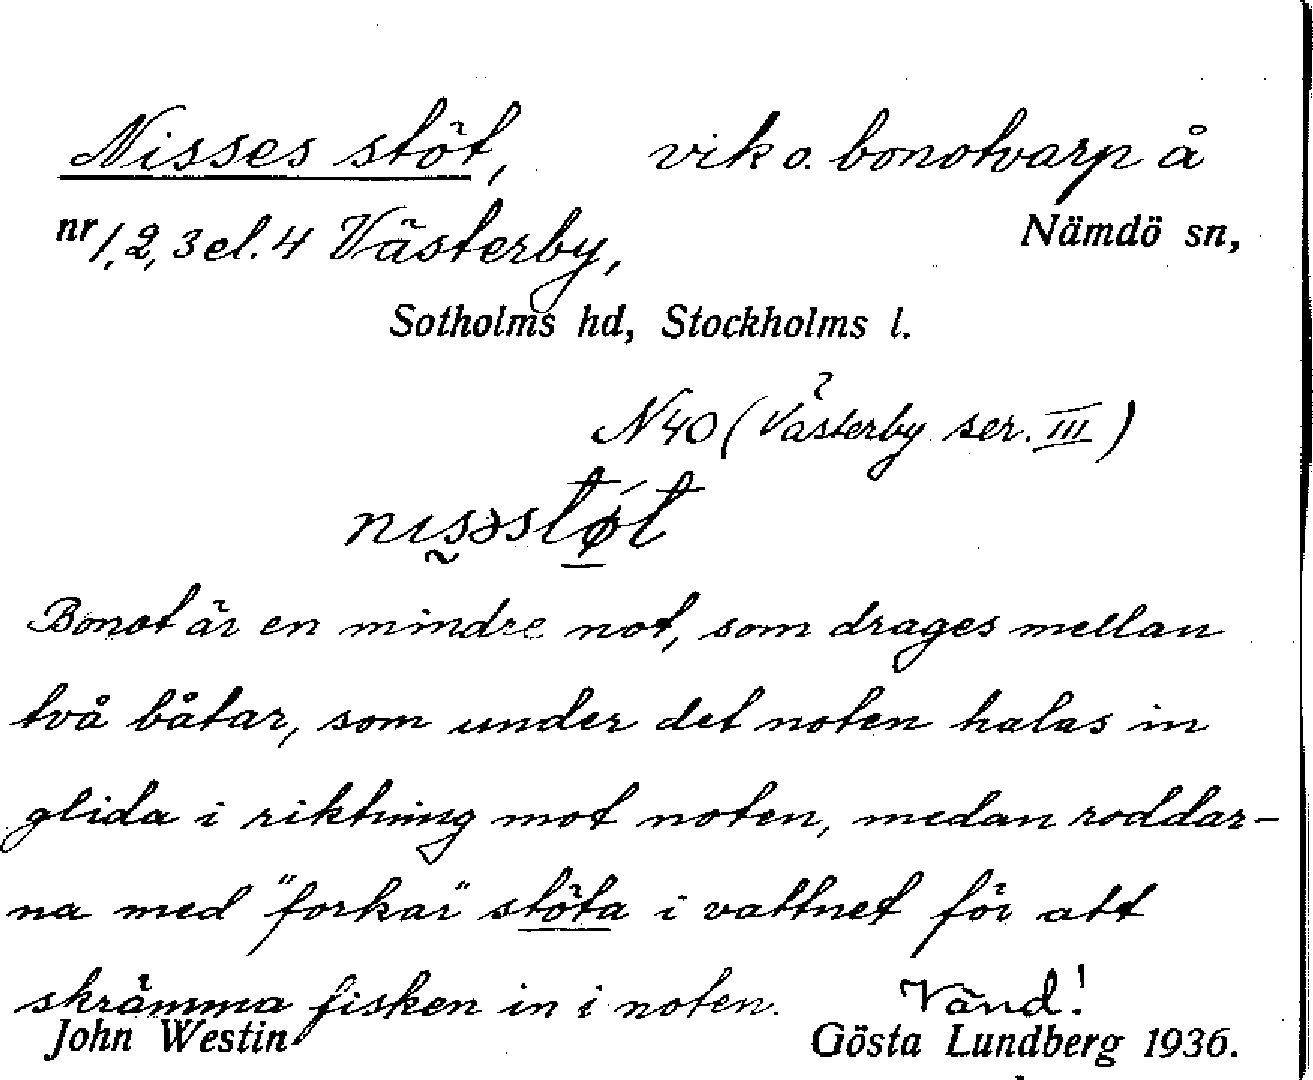 Nisses stöt, vik o. bonotvarp å
nr 1, 2, 3 el. 4 Västerby, Nämdö sn,
Sotholms hd, Stockholms l.
?
N 40 (Västerby ser. III)
nɪs̰əstǿt
Bonot är en mindre not, som drages mellan
två båtar, som under det noten halas in
glida i riktning mot noten, medan roddar-
na med "forkar" stöta i vattnet för att
skrämma fisken in i noten. Vänd!
John Westin Gösta Lundberg 1936.